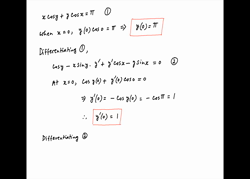 x cosy + y cosx = π ①
when x=0, y(0) cos0 = π ⇒ y(0) = π
Differentiating ①,
cosy - x siny. y' + y' cosx - y sinx = 0 ②
At x=0, cos y(0) + y'(0) cos0 = 0
⇒ y'(0) = - cos y(0) = - cosπ = 1
∴ y'(0) = 1
Differentiating ②